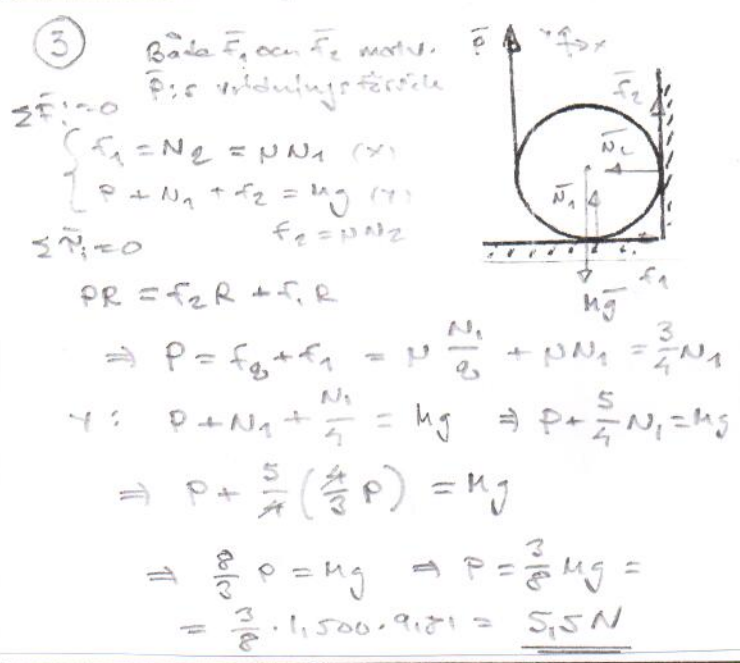 3
Båda F̄₁ och F̄₂ motv.
P̄:s vridningsförsök
ΣF̄ᵢ=0
f₁ = N₂ = μN₁ (x)
P + N₁ + f₂ = Mg (y)
f₂ = μN₂
Στ̄ᵢ=0
PR = f₂R + f₁R
⇒ P = f₂ + f₁ = μ N₁/2 + μN₁ = 3/4 N₁
Y: P + N₁ + N₁/4 = Mg ⇒ P + 5/4 N₁ = Mg
⇒ P + 5/4 (4/3 P) = Mg
⇒ 8/3 P = Mg ⇒ P = 3/8 Mg =
= 3/8 · 1,500 · 9,81 = 5,5N
P̄
x
f̄₂
N̄₂
N̄₁
f₁
Mḡ